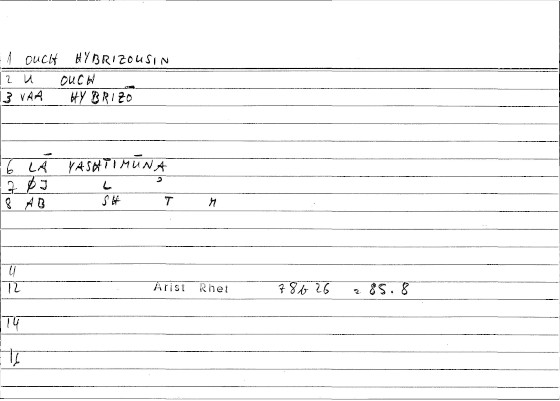 1 OUCH HYBRIZOUSIN
2 U OUCH
3 VAA HYBRIZŌ
6 LĀ YASHTIMŪNA
7 ØJ L ʾ
8 AB SH T M
11
12 Arist Rhet 78b26 = 85.8
14